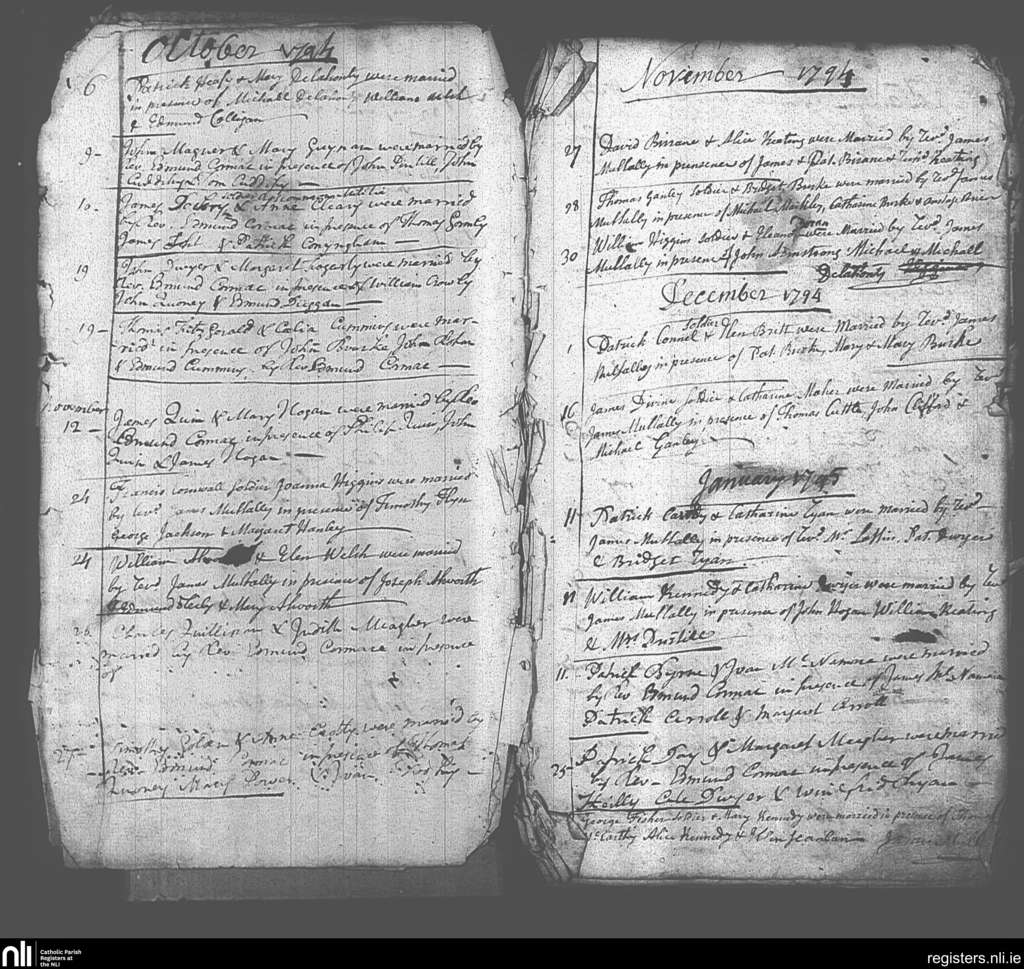 October 1794
6 Patrick Heafy & Mary Delahonty were married
in presence of Michall Delahonty Williams
& Edmund Collegan
9 - John Magner & Mary Guynan were married by
Rev. Edmund Cormac in presence of John John
Cuddihy Tom Cuddihy
soldier
10 - James & Anne Cleary were married
by Rev. Edmund Cormac in presence of Thomas Gormly
James & Patrick Conyngham
19 John Dwyer & Margaret Fogarty were married by
Rev. Edmund Cormac in presence of William Crowly
John Quoney & Edmund Duggan
19 - Thomas Fitzgerald & Celia Cummins were mar-
ried in presence of John Bourke John
& Edmund Cummins, by Rev. Edmund Cormac
November
12 - James Quin & Mary Hogan were married by Rev
Edmund Cormac in presence of Philip Quin, John
Quin & James Hogan
24 Francis Cornwall Soldier Joanna Higgins were married
by Revd. James Mullally in presence of Timothy
George Jackson & Margaret Hanley
24 William & Elen Welsh were married
by Revd James Mullally in presence of Joseph Ahworth
Edmund & Mary Ahworth
26 Charles Quillinan & Judith Meagher were
married by Rev. Edmund Cormac in presence
of
27 - Timothy & Anne were married by
Rev. Edmund Cormac in presence of Thomas
Quoney Mary & Joan
November 1794
27 David Birrane & Alice Keating were Married by Revd. James
Mullally in presence of James & Pat. Birrane & Keating
28 Thomas Ganley Soldier & Bridget Burke were married by Revd James
Mullally in presence of Michael Catharine Burke &
30 Willm Higgins soldier & Eleanor were Married by Revd. James
Mullally in presence of John Armstrong Michael & Michael
Delahonty
December 1794
Soldier
1 Patrick Connel & Elen Britt were Married by Revd. James
Mullalley in presence of Pat. Mary & Mary Burke
16 James Divine Soldier & Catharine Maher were Married by Revd
James Mullally in presence of Thomas Cuttle, John Clifford &
Michael Ganley
January 1795
11 - Patrick Carthy & Catharine Ryan were married by Revd.
James Mullally in presence of Revd. Mr. Laffin, Pat. Dwyer
& Bridget Ryan
11 William Kennedy & Catharine Dwyer were married by Rev
James Mullally in presence of John Hogan William Keating
& Mrs
11 - Patrick Byrne & Joan McNamara were married
by Rev Edmund Cormac in presence of James McNamara
Patrick Carroll & Margaret Carroll
25 - Patrick Fay & Margaret Meagher were married
by Rev. Edmund Cormac in presence of James
Heilly Cate Dwyer & Winefred Ryan
George Fisher Soldier & Mary Kennedy were married in presence of
McCarthy Alice Kennedy &
nli
Catholic Parish
Registers at
the NLI
registers.nli.ie